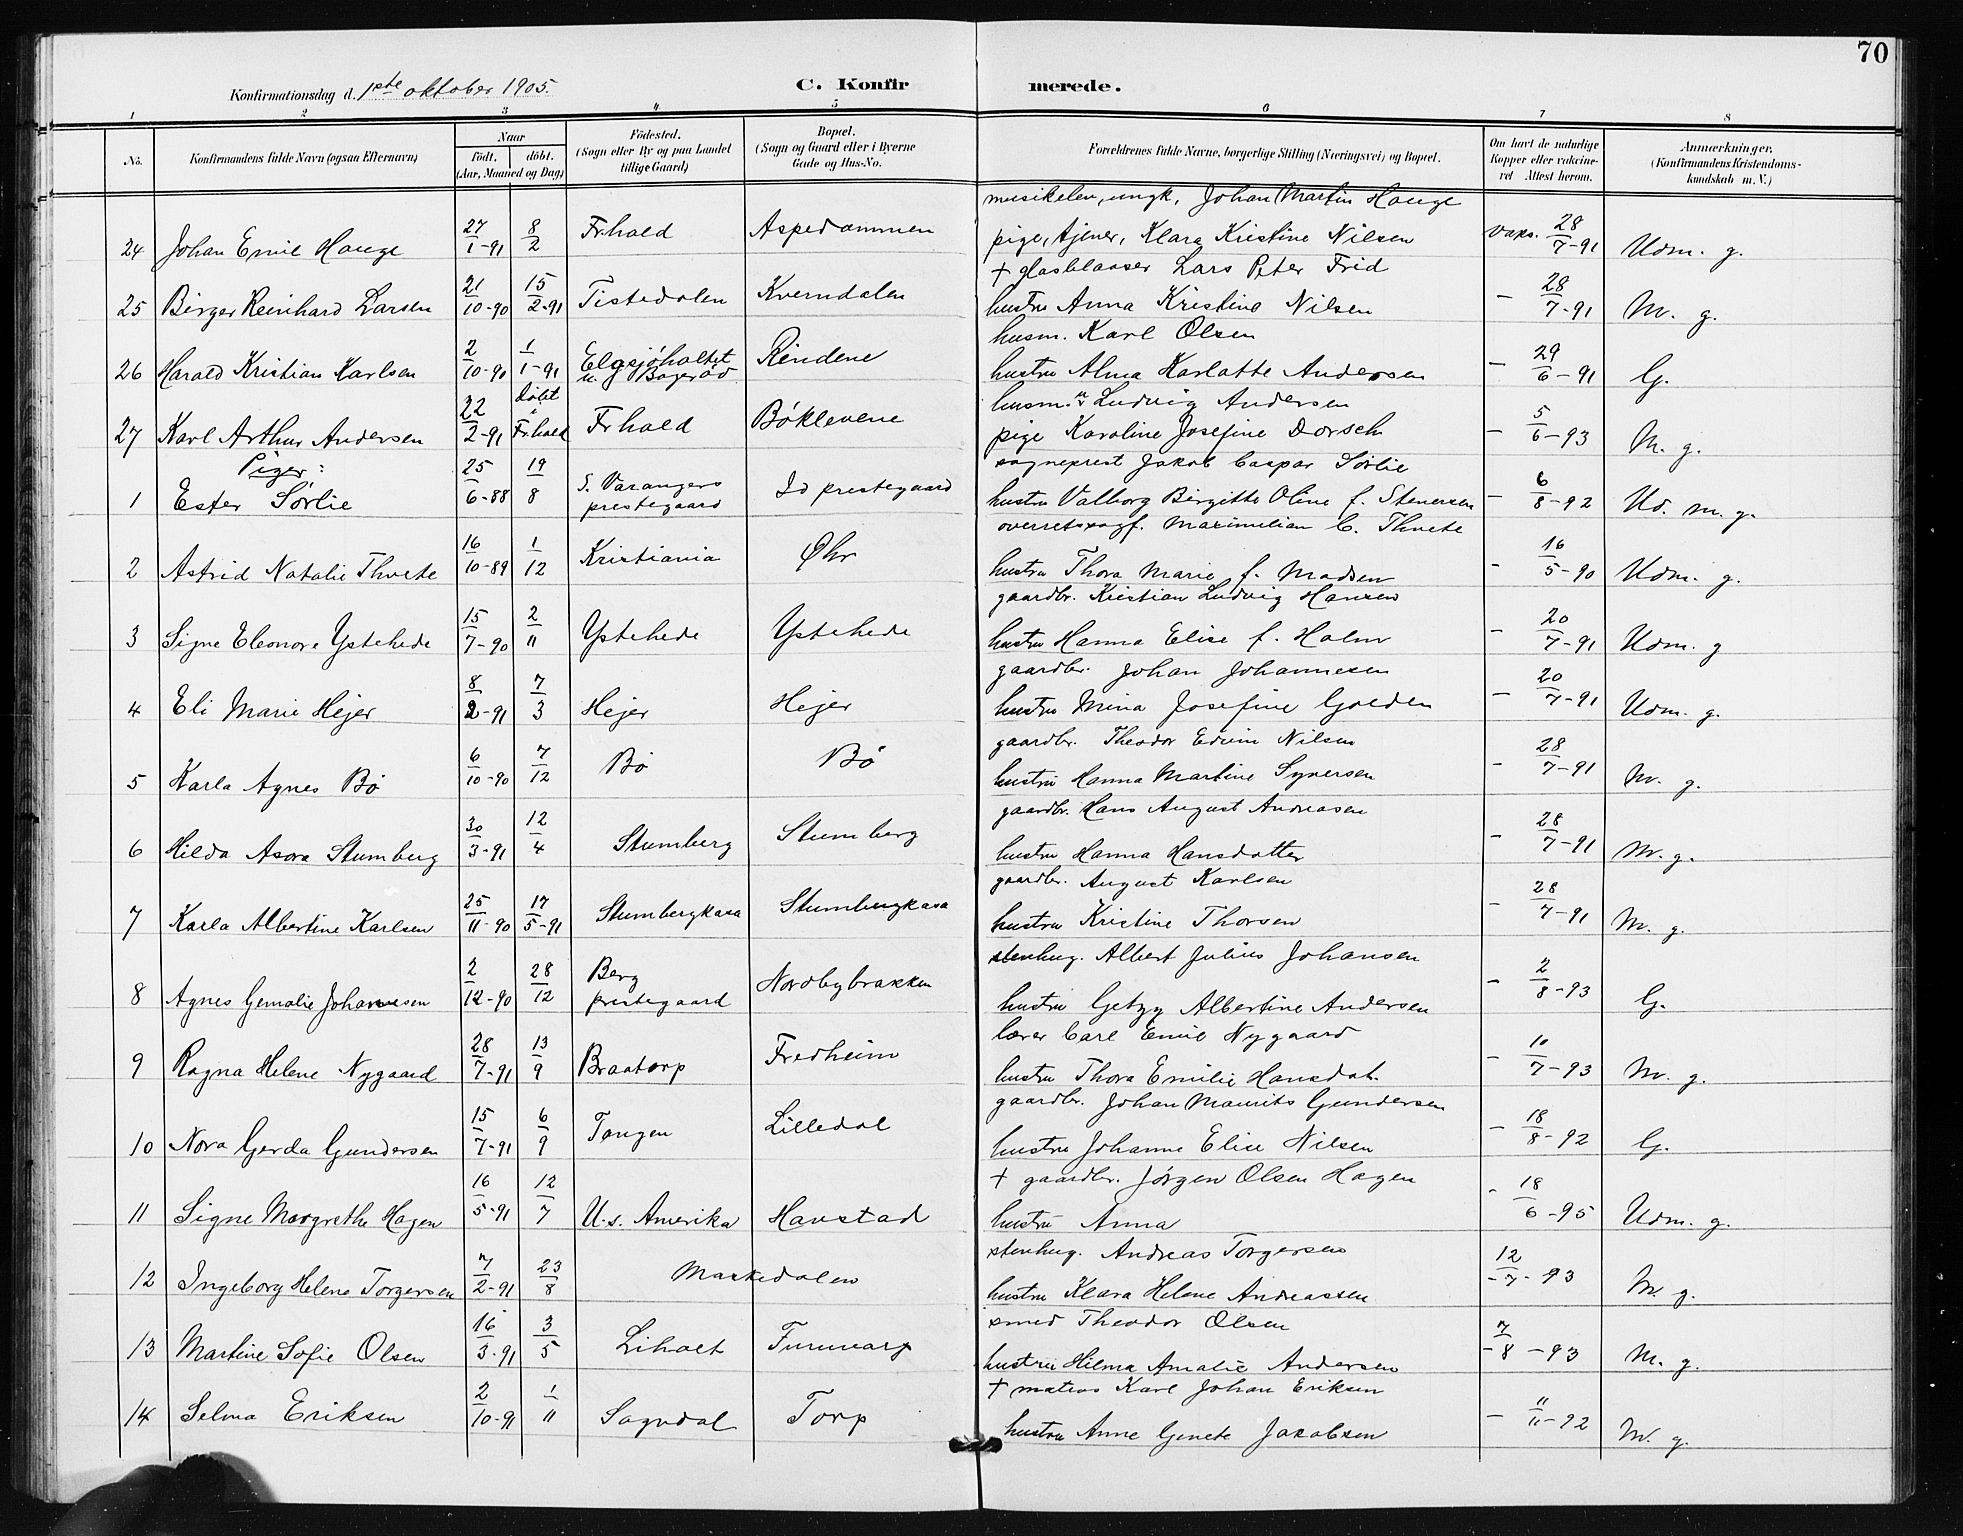 70
Konfirmationsdag d. 1ste oktober 1905.
C. Konfirmerede.
1 2 3 4 5 6 7 8
No. Konfirmandens fulde Navn (ogsaa Efternavn) Naar födt. döbt. (Aar, Maaned og Dag) Födested. (Sogn eller By og paa Landet tillige Gaard) Bopæl. (Sogn og Gaard eller i Byerne Gade og Hus-No. Forældrenes fulde Navne, borgerlige Stilling (Næringsvei) og Bopæl. Om havt de naturlige Kopper eller vakcineret Attest herom. Anmærkninger. (Konfirmandens Kristendomskundskab m. V.)
musikelev, ungk. Johan Martin Hauge
24 Johan Emil Hauge 27/1-91 8/2 Frhald Aspedammen pige, tjener, Klara Kristine Nilsen vaks. 28/7-91 Udm. g.
+ glasblaaser Lars Peter Frid
25 Birger Reinhard Larsen 21/10-90 15/2-91 Tistedalen Kverndalen hustru Anna Kristine Nilsen - 28/7-91 M. g.
husm. Karl Olsen
26 Harald Kristian Karlsen 2/10-90 1/1-91 Elgsjöholtet u. Bøgerød Rindene hustru Alma Karlotte Andersen - 29/6-91 G.
husm. Ludvig Andersen
27 Karl Arthur Andersen 22/2-91 döbt i Frhald Frhald Böklevene pige Karoline Josefine Dorsch - 5/6-93 M. g.
Piger:
sogneprest Jakob Caspar Sörlie
1 Ester Sörlie 25/6-88 19/8 S. Varangers prestegaard Id prestegaard hustru Valborg Birgitte Oline f. Stenersen - 6/8-92 Ud. m. g.
overretssagf. Maximilian C. Thvete
2 Astrid Natalie Thvete 16/10-89 1/12 Kristiania Øhr hustru Thora Marie f. Madsen - 16/5-90 Udm. g.
gaardbr. Kristian Ludvig Hansen
3 Signe Eleonore Ystehede 15/7-90 2/11 Ystehede Ystehede hustru Hanna Elise f. Holm - 20/7-91 Udm. g
gaardbr. Johan Johannesen
4 Eli Marie Hejer 8/2-91 7/3 Hejer Hejer hustru Mina Josefine Golden - 20/7-91 Udm. g.
gaardbr. Theodor Edvin Nilsen
5 Karla Agnes Bö 6/10-90 7/12 Bö Bö hustru Hanna Martine Syversen - 28/7-91 M. g.
gaardbr. Hans August Andreasen
6 Hilda Asora Stumberg 30/3-91 12/4 Stumberg Stumberg hustru Hanna Hansdatter - 28/7-91 M. g.
gaardbr. August Karlsen
7 Karla Albertine Karlsen 25/11-90 17/5-91 Stumbergkasa Stumbergkasa hustru Kristine Thorsen - 28/7-91 M. g.
stenhug. Albert Julius Johansen
8 Agnes Gemalie Johannesen 2/12-90 28/12 Berg prestegaard Nordbybrakken hustru Getzy Albertine Andersen - 2/8-93 G.
lærer Carl Emil Nygaard
9 Ragna Helene Nygaard 28/7-91 13/9 Braatorp Fredheim hustru Thora Emilie Hansdat. - 10/7-93 M. g.
gaardbr. Johan Maurits Gundersen
10 Nora Gerda Gundersen 15/7-91 6/9 Tangen Lilledal hustru Johanne Elise Nilsen - 18/8-92 G.
+ gaardbr. Jörgen Olsen Hagen
11 Signe Margrethe Hagen 16/5-91 12/7 U.s. Amerika Havstad hustru Anna - 18/6-95 Udm. g.
stenhug. Andreas Torgersen
12 Ingeborg Helene Torgersen 7/2-91 23/8 Maskedalen hustru Klara Helene Andreassen 12/-7-93 M. g.
smed Theodor Olsen
13 Martine Sofie Olsen 16/3-91 3/5 Liholt Furuvarp hustru Hilma Amalie Andersen 7/-8-93 M. g.
+ matros Karl Johan Eriksen
14 Selma Eriksen 2/10-91 1/11 Sagvdal Torp hustru Anne Genete Jakobsen - 11/11-92 M. g.